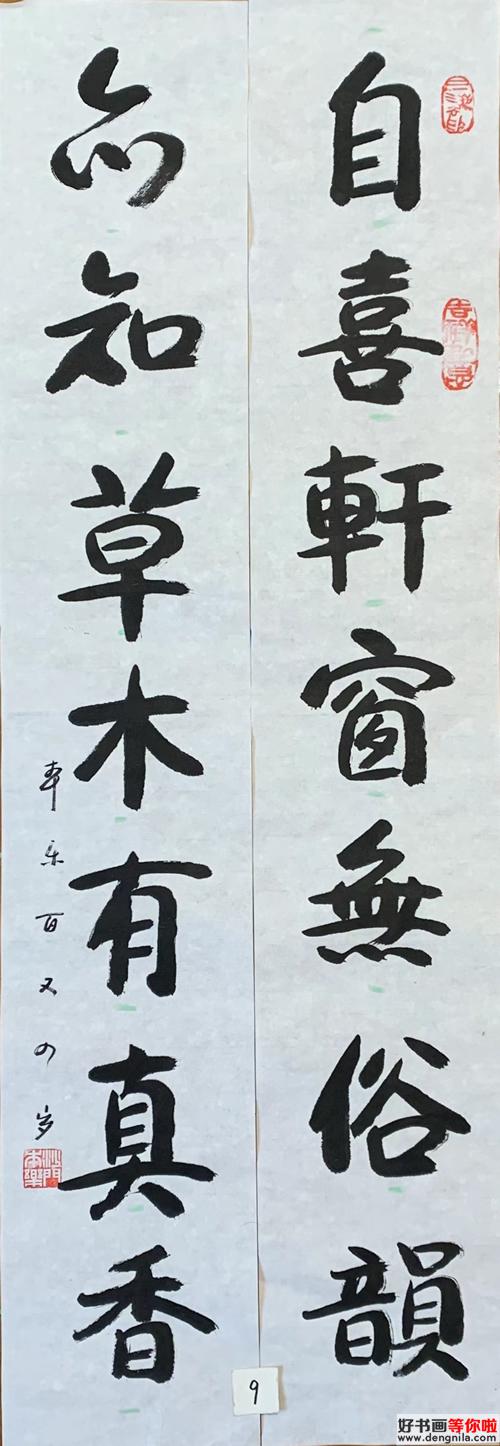 自喜軒窗無俗韻
亦知草木有真香
本樂百又四岁
沙門本樂
9
好书画等你啦
www.dengnila.com